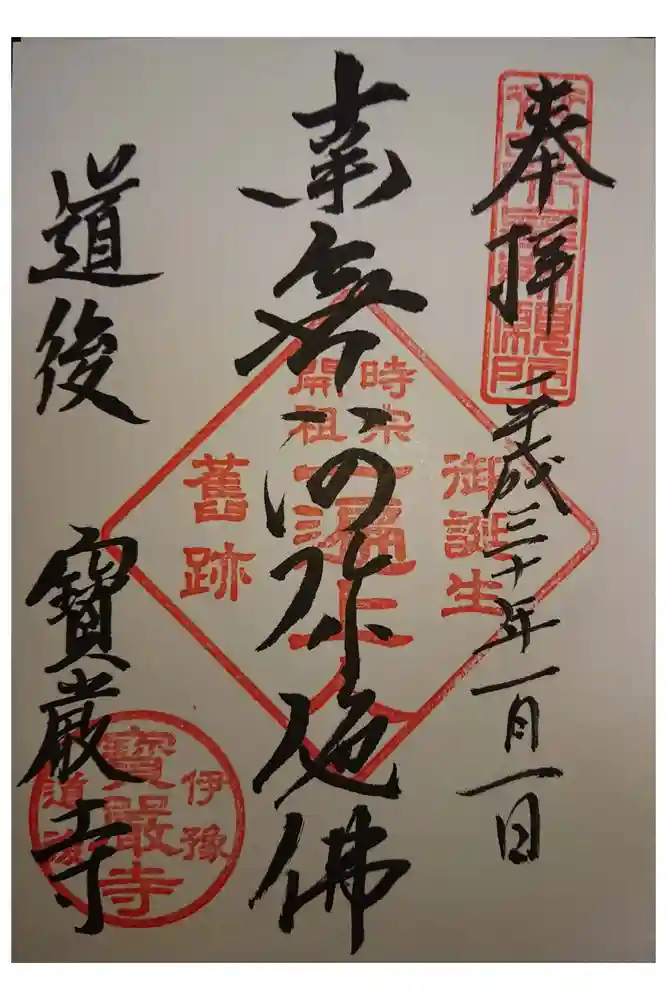 奉拝
平成三十年一月一日
南無阿弥陀佛
道後
寶厳寺
時宗
開祖
一遍上人
御誕生
舊跡
伊豫
寶嚴寺
道後